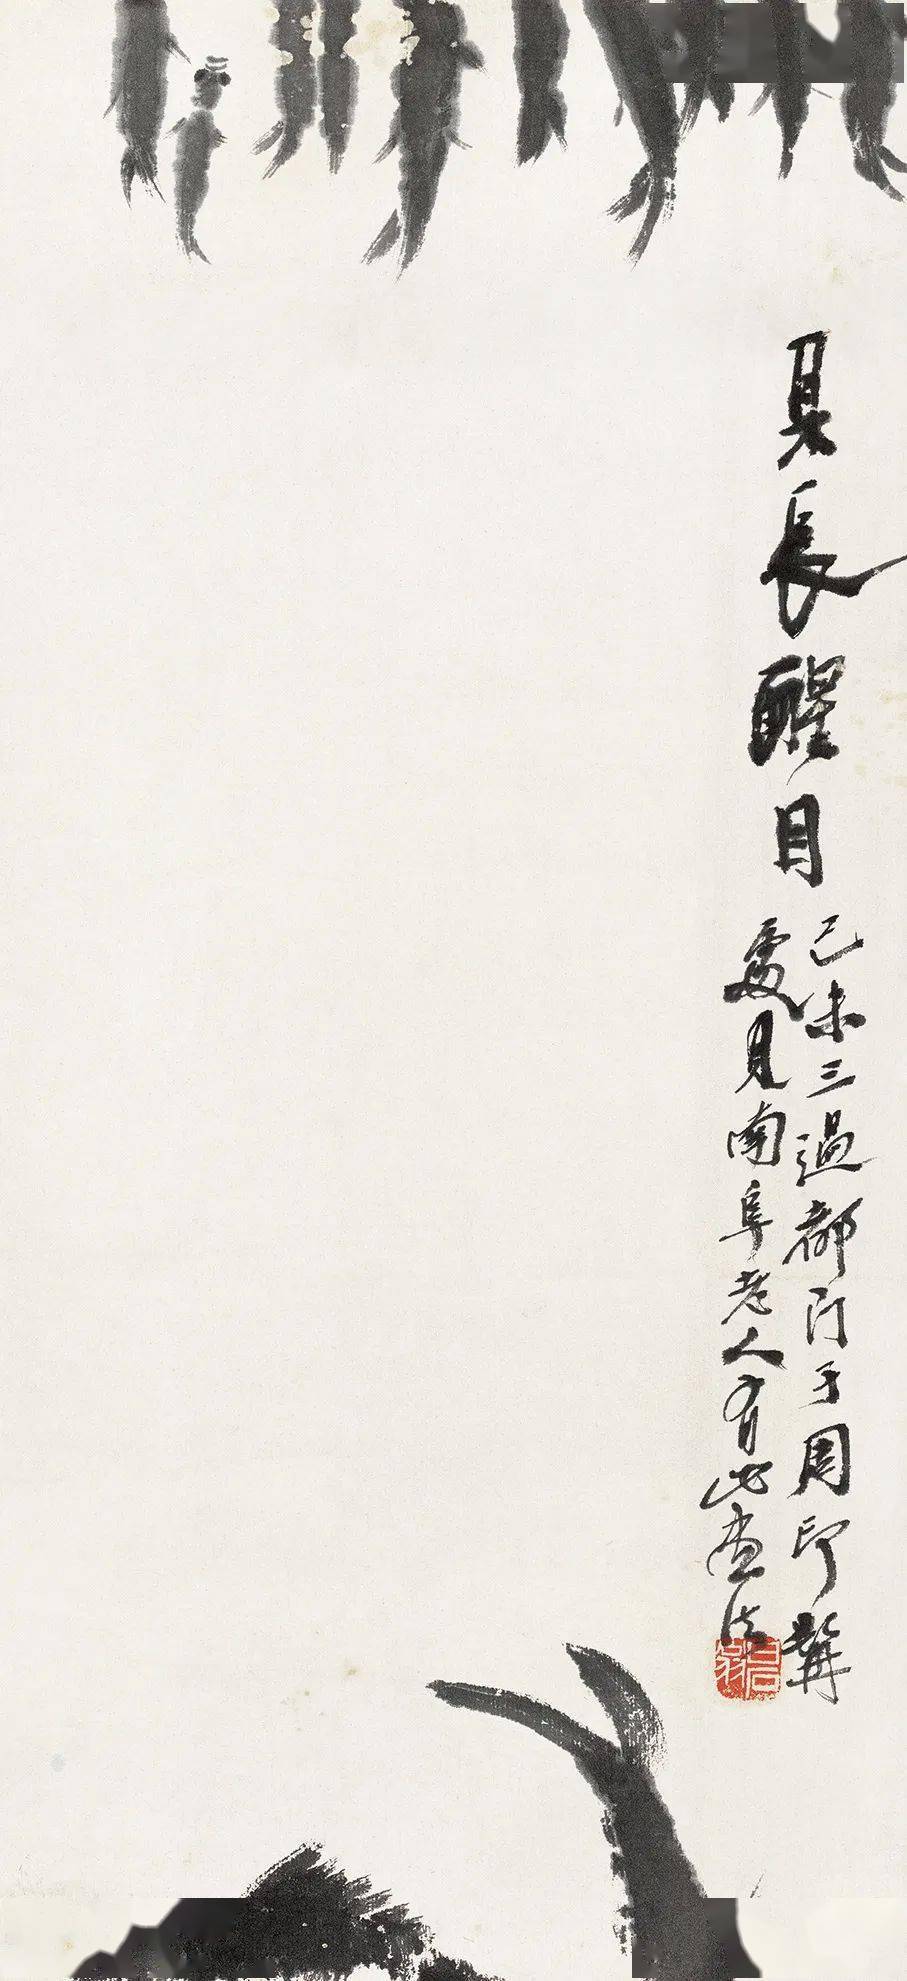 具長醒目
己未三過都門于周印髯
處見南阜老人有此畫法
白石翁